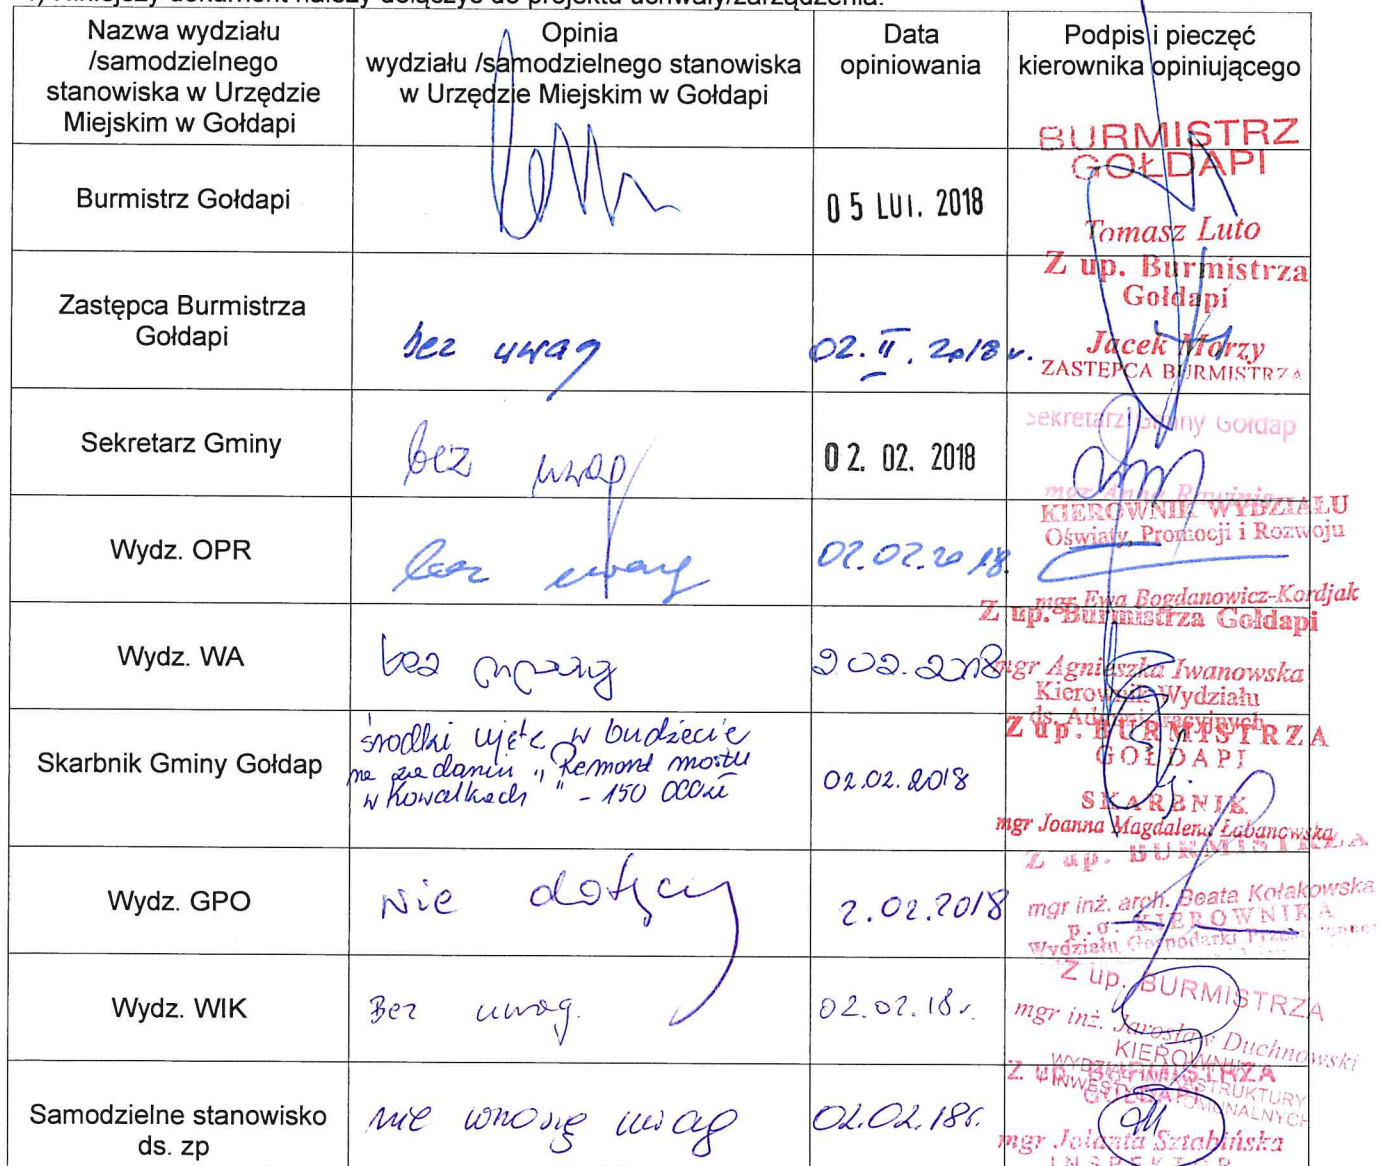 Nazwa wydziału
/samodzielnego
stanowiska w Urzędzie
Miejskim w Gołdapi
Opinia
wydziału /samodzielnego stanowiska
w Urzędzie Miejskim w Gołdapi
Data
opiniowania
Podpis i pieczęć
kierownika opiniującego
Burmistrz Gołdapi
05 LUT. 2018
BURMISTRZ
GOŁDAPI
Tomasz Luto
Zastępca Burmistrza
Gołdapi
bez uwag
02. II. 2018 r.
Z up. Burmistrza
Gołdapi
Jacek Morzy
ZASTĘPCA BURMISTRZA
Sekretarz Gminy
bez uwag
02. 02. 2018
Sekretarz Gminy Gołdap
mgr Anna
Wydz. OPR
bez uwag
02.02.2018
KIEROWNIK WYDZIAŁU
Oświaty, Promocji i Rozwoju
mgr Ewa Bogdanowicz-Kordjak
Wydz. WA
bez uwag
2 02. 2018
Z up. Burmistrza Gołdapi
mgr Agnieszka Iwanowska
Kierownik Wydziału
ds. Administracyjnych
Skarbnik Gminy Gołdap
środki ujęte w budżecie
na zadaniu „Remont mostu
w Kowalkach" - 150 000 zł
02.02.2018
Z up. BURMISTRZA
GOŁDAPI
SKARBNIK
mgr Joanna Magdalena Łabanowska
Wydz. GPO
Nie dotyczy
2.02.2018
Z up. BURMISTRZA
mgr inż. arch. Beata Kołakowska
p.o. KIEROWNIKA
Wydziału Gospodarki
Wydz. WIK
Bez uwag.
02.02.18 r.
Z up. BURMISTRZA
mgr inż. Jarosław Duchnowski
KIEROWNIK
Samodzielne stanowisko
ds. zp
nie wnoszę uwag
02.02.18r.
Z up. BURMISTRZA
GOŁDAPI
mgr Jolanta Sztabińska
INSPEKTOR